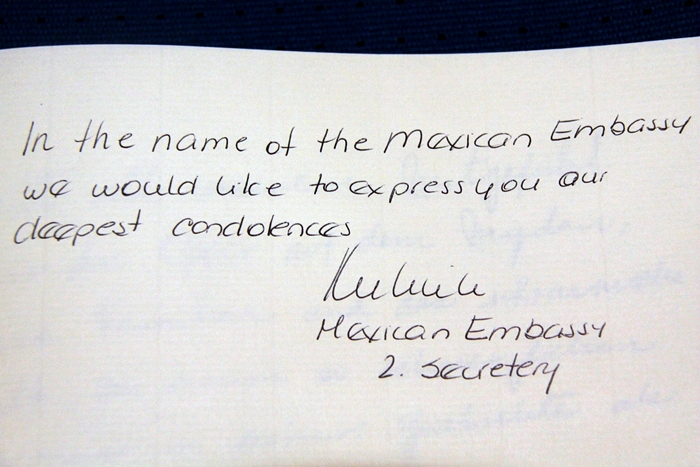 In the name of the Mexican Embassy
we would like to express you our
deepest condolences
Mexican Embassy
2. Secretery